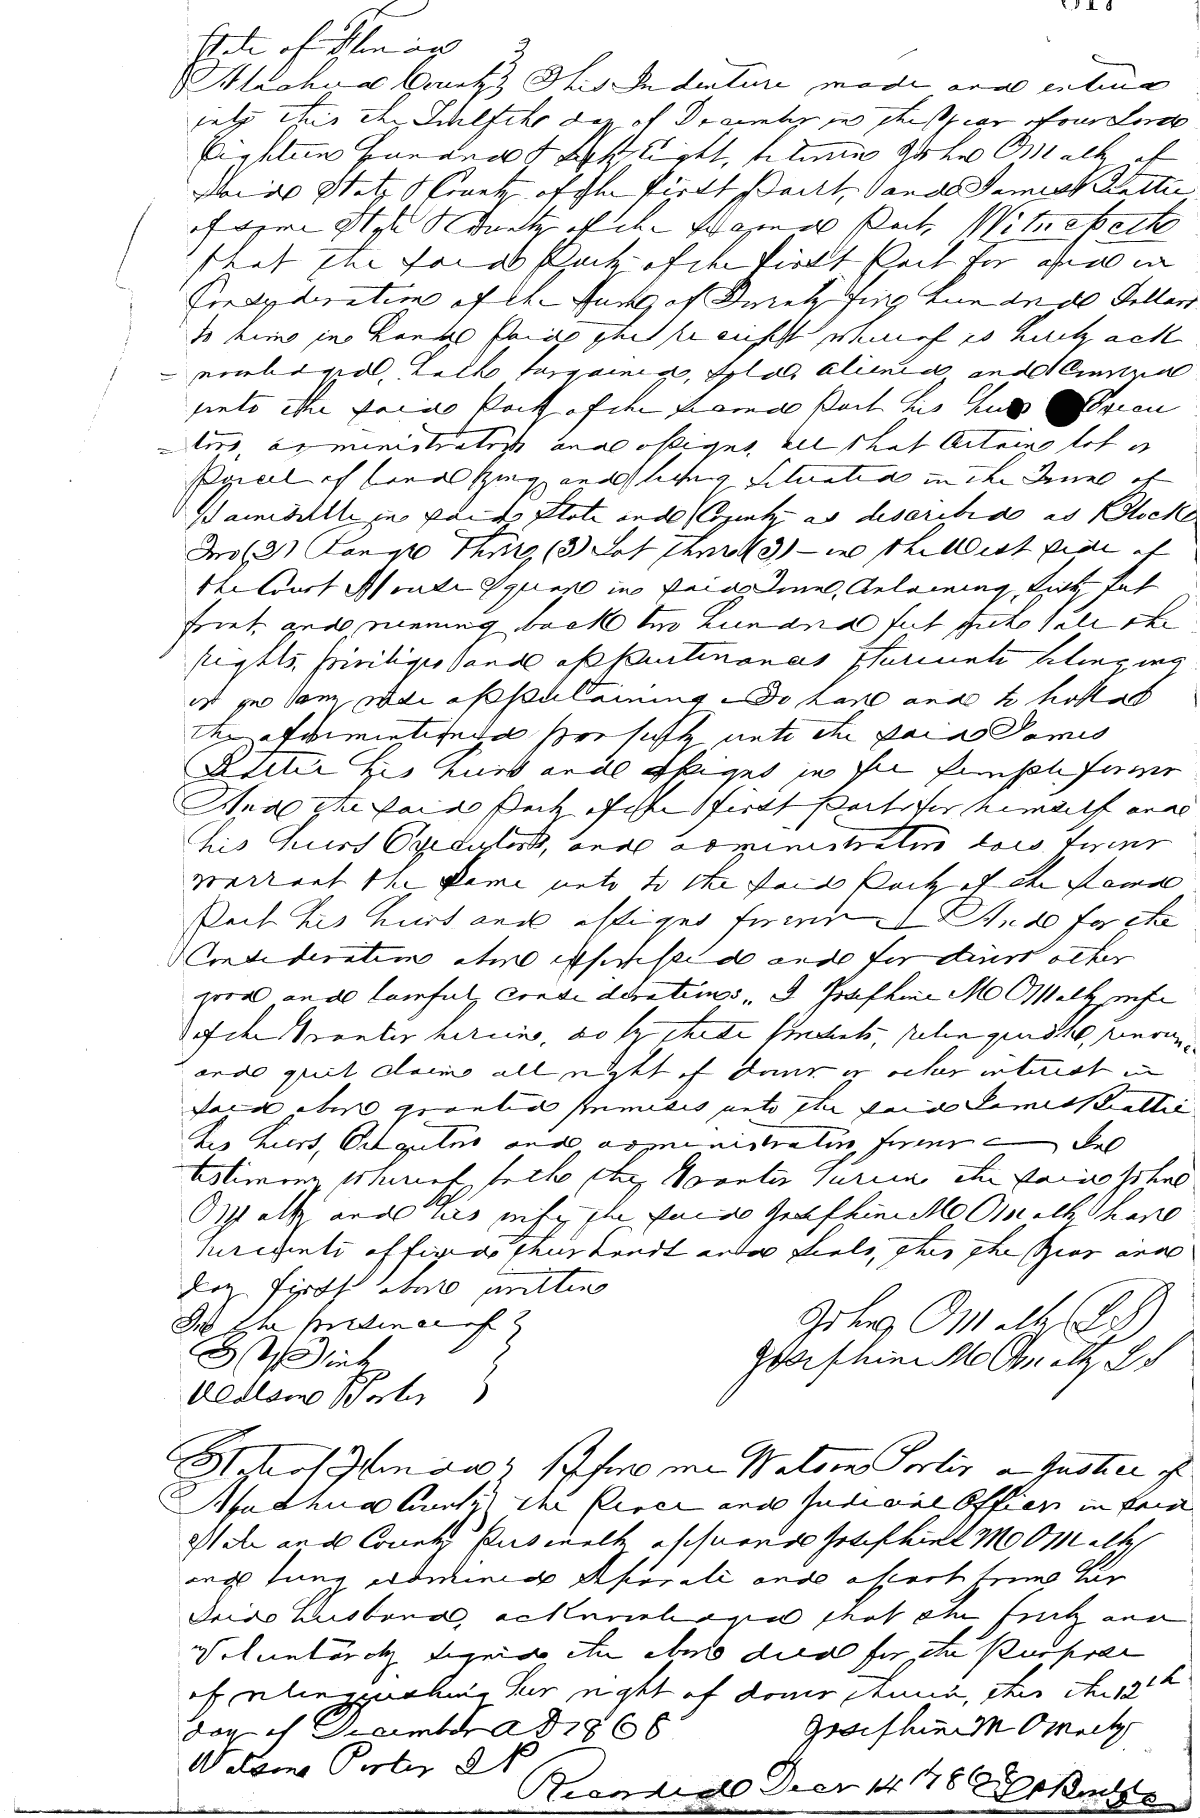 617
State of Florida
Alachua County This Indenture made and entered
into this the Twelfth day of December in the Year of our Lord
Eighteen Hundred & Sixty Eight, between John OMally of
Said State & County of the first Part, and James Beattie
of same State & County of the Second Part, Witnesseth
that the said Party of the first Part for and in
Consideration of the Sum of Twenty five hundred Dollars
to him in hand Paid the receipt whereof is hereby ack
=nowledged, hath bargained, sold, aliened and Conveyed
unto the said Party of the Second Part his heirs Execu
=tors, administrators and assigns, all that Certain lot or
Parcel of land lying and being Situated in the Town of
Gainesville in said State and County as described as Block
Two (2) Range Three (3) Lot three (3) - on the West side of
the Court House Square in said Town, Containing Sixty feet
front, and running back two hundred feet with all the
rights, priviliges and appurtinances thereunto belonging
or in any wise appertaining To have and to hold
the aforementioned property unto the said James
Beattie his heirs and assigns in fee Simple forever
And the said Party of the first Part for himself and
his heirs Executors, and administrators does forever
warrant the Same unto to the said Party of the Second
Part his heirs and assigns forever And for the
Consideration above expressed and for divers other
good and lawful considerations, I Josephine M OMally wife
of the Grantor herein, do by these presents, relinquish, renounce
and quit claim all right of dower or other interest in
said above granted premises unto the said James Beattie
his heirs, Executors and administrators forever In
testimony whereof both the Grantor herein the said John
OMally and his wife the said Josephine M OMally have
hereunto affixed their hands and Seals, this the Year and
day first above written
In the presence of John OMally (LS)
Josephine M OMally LS
Watson Porter
State of Florida Before me Watson Porter a Justice of
Alachua County the Peace and Judicial Officer in said
State and County Personally appeared Josephine M OMally
and being examined Seperate and apart from her
Said husband, acknowledged that she freely and
Voluntarily signed the above deed for the Purpose
of relinquishing her right of dower therein, this the 12th
day of December AD 1868 Josephine M OMally
Watson Porter JP
Recorded Decr 14 1868